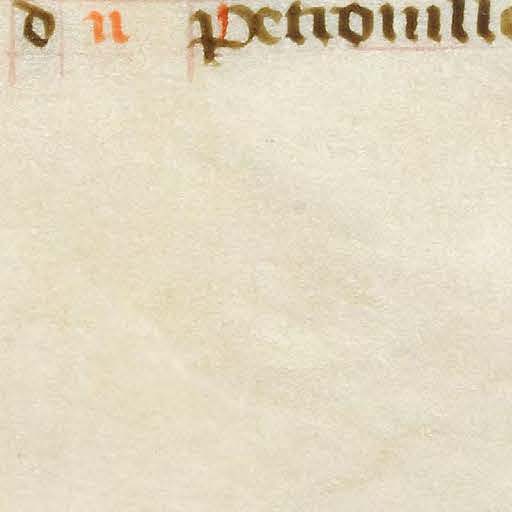 d n Petronille